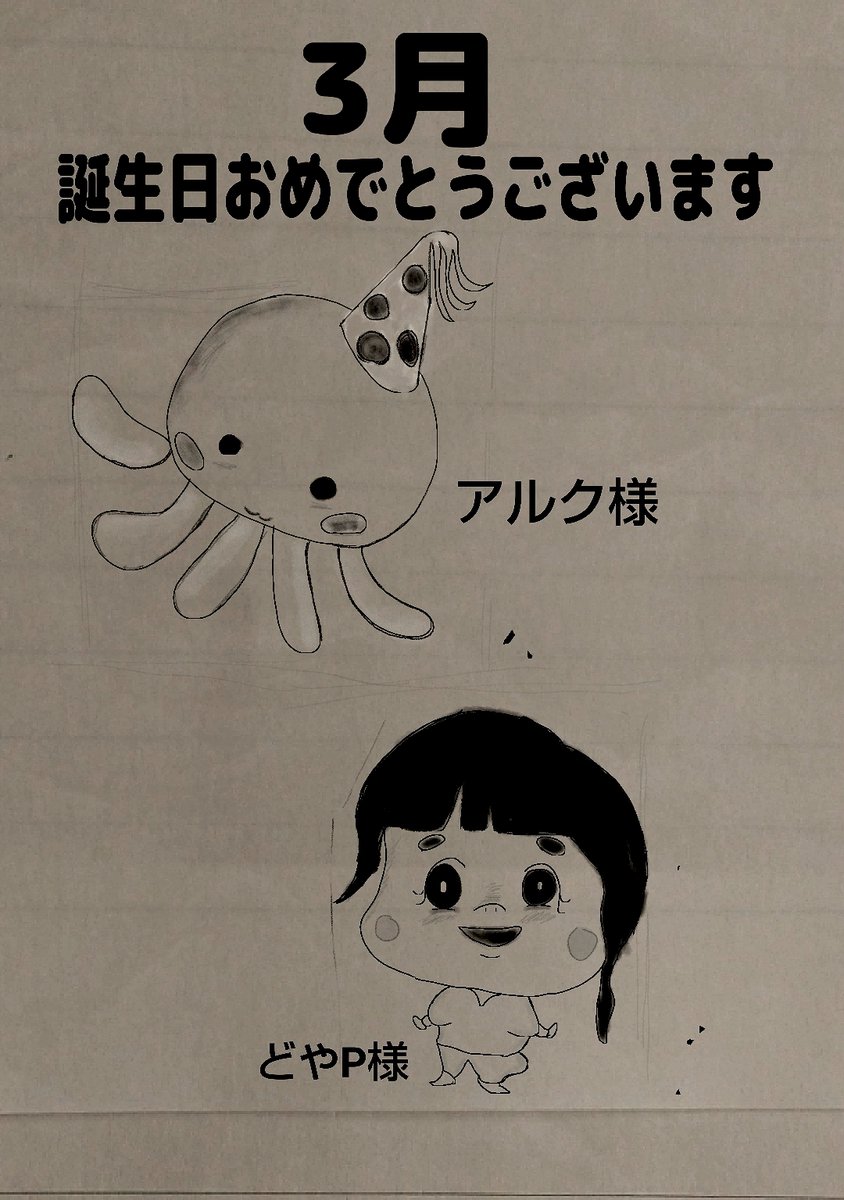 3月
誕生日おめでとうございます
アルク様
どやP様